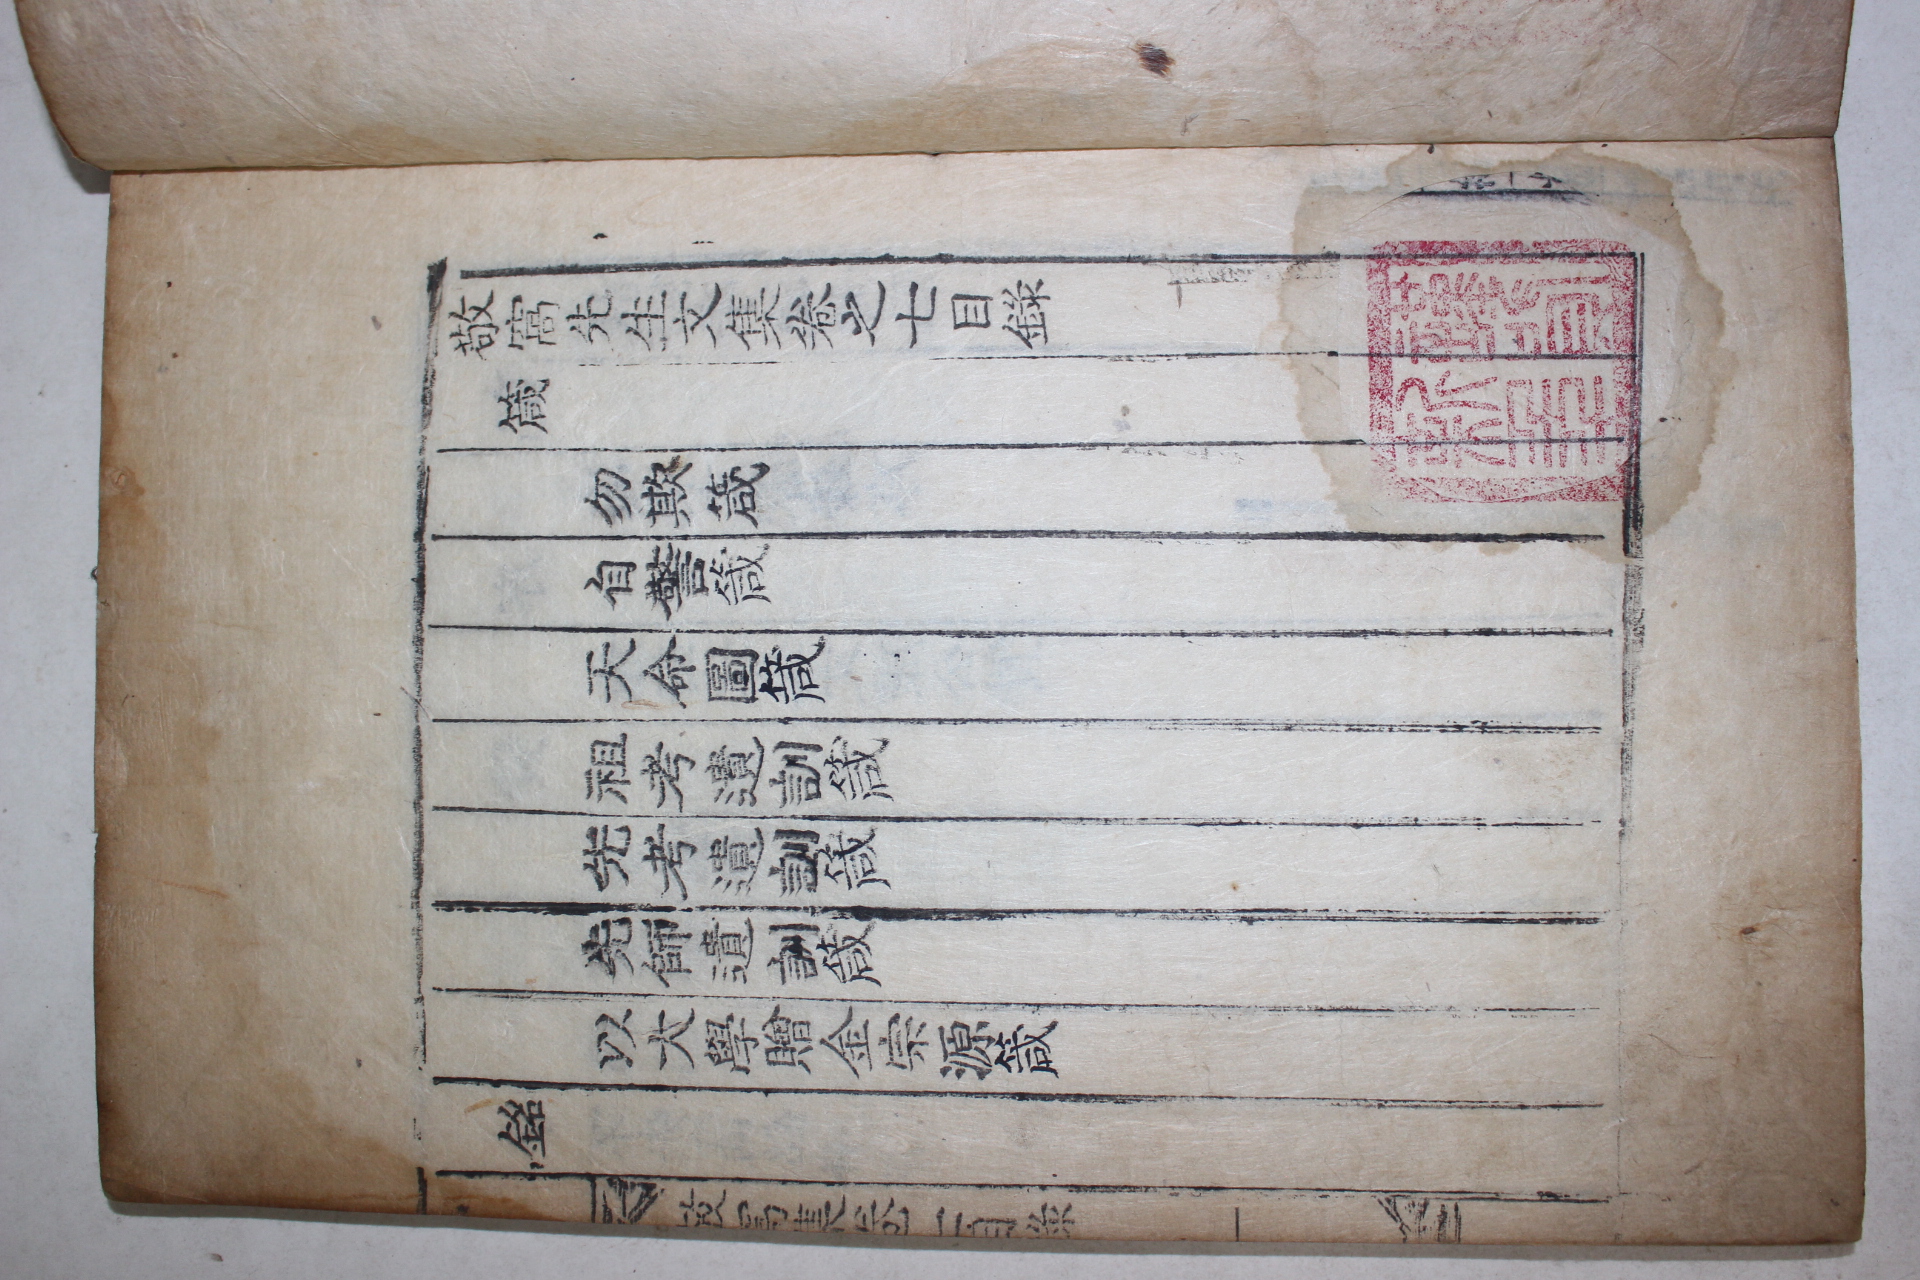 敬窩先生文集卷之七目錄
箴
勿欺箴
自警箴
天命圖箴
祖考遺訓箴
先考遺訓箴
先師遺訓箴
以大學贈金宗源箴
銘